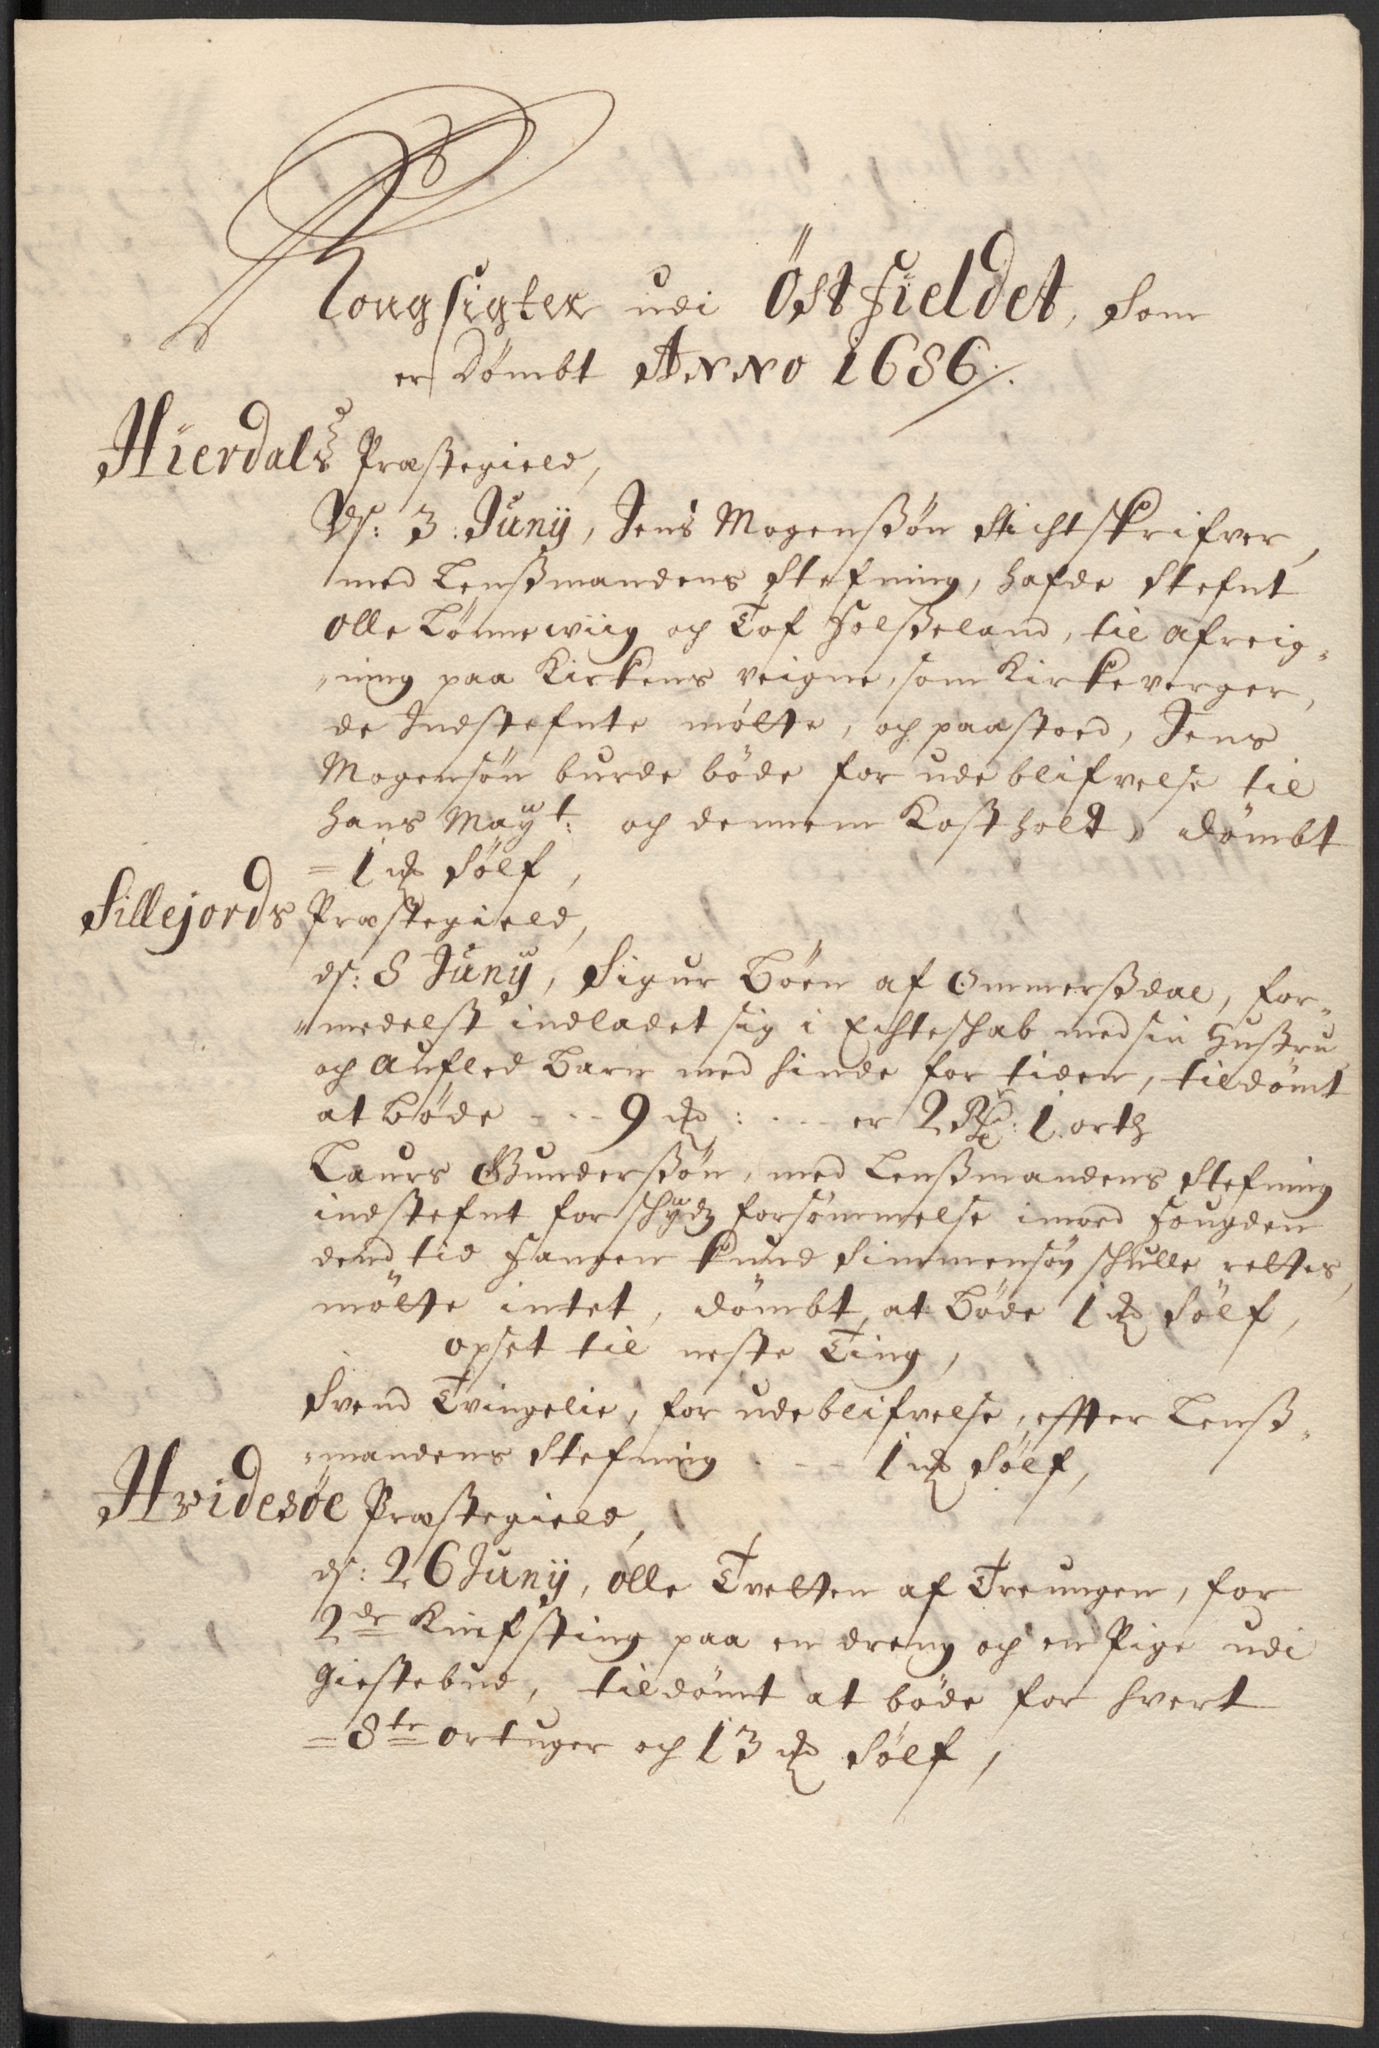 Kongsigter udi Østfieldet, som
er Dømbt ANNO 1686.
Hierdals Præstegield,
Ds: 3: Junij, Jens Mogensøn Stichtskrifver,
med Lensmandens Stefning, hafde Stefnt
Olle Lønnewiig och Tof Holseland, til afreig„
„ning paa Kirkens veigne, som Kirkeverger,
de Indstefnte mølte, och paastoed, Jens
Mogensøn burde bøde for udeblifvelse til
hans Mayt: och dennem Kostholt, dømbt
= 1 lod Sølf,
Sillejords Præstegield,
ds: 8 Junij, Sigur Bøen af Ommersdal, for„
„medelst indladet sig i Echteschab med sin Hustru
och Aufled Barn med hinde for tiden, tildømt
at Bøde - - - 9 lod : - - - er 2 Rd: 1 orth
Laurs Gundersøn, med Lensmandens Stefning
indstefnt for schydz forsømmelse imod Fougden
dend tid Fangen Knud Simmensøn schulle rettes,
mølte intet, dømbt at Bøde 1 lod Sølf,
opset til neste Ting,
Svend Tvingelie, for udeblifvelse, effter Lens„
„mandens Stefning - - - 1 lod Sølf,
Hvidesøe Præstegield,
ds: 26 Junij, Olle Tveitten af Treungen, for
2de Knifsting paa en dreng och en Pige udi
Giestebud, tildømt at bøde for hvert
= 8te ortuger och 13 lod Sølf,